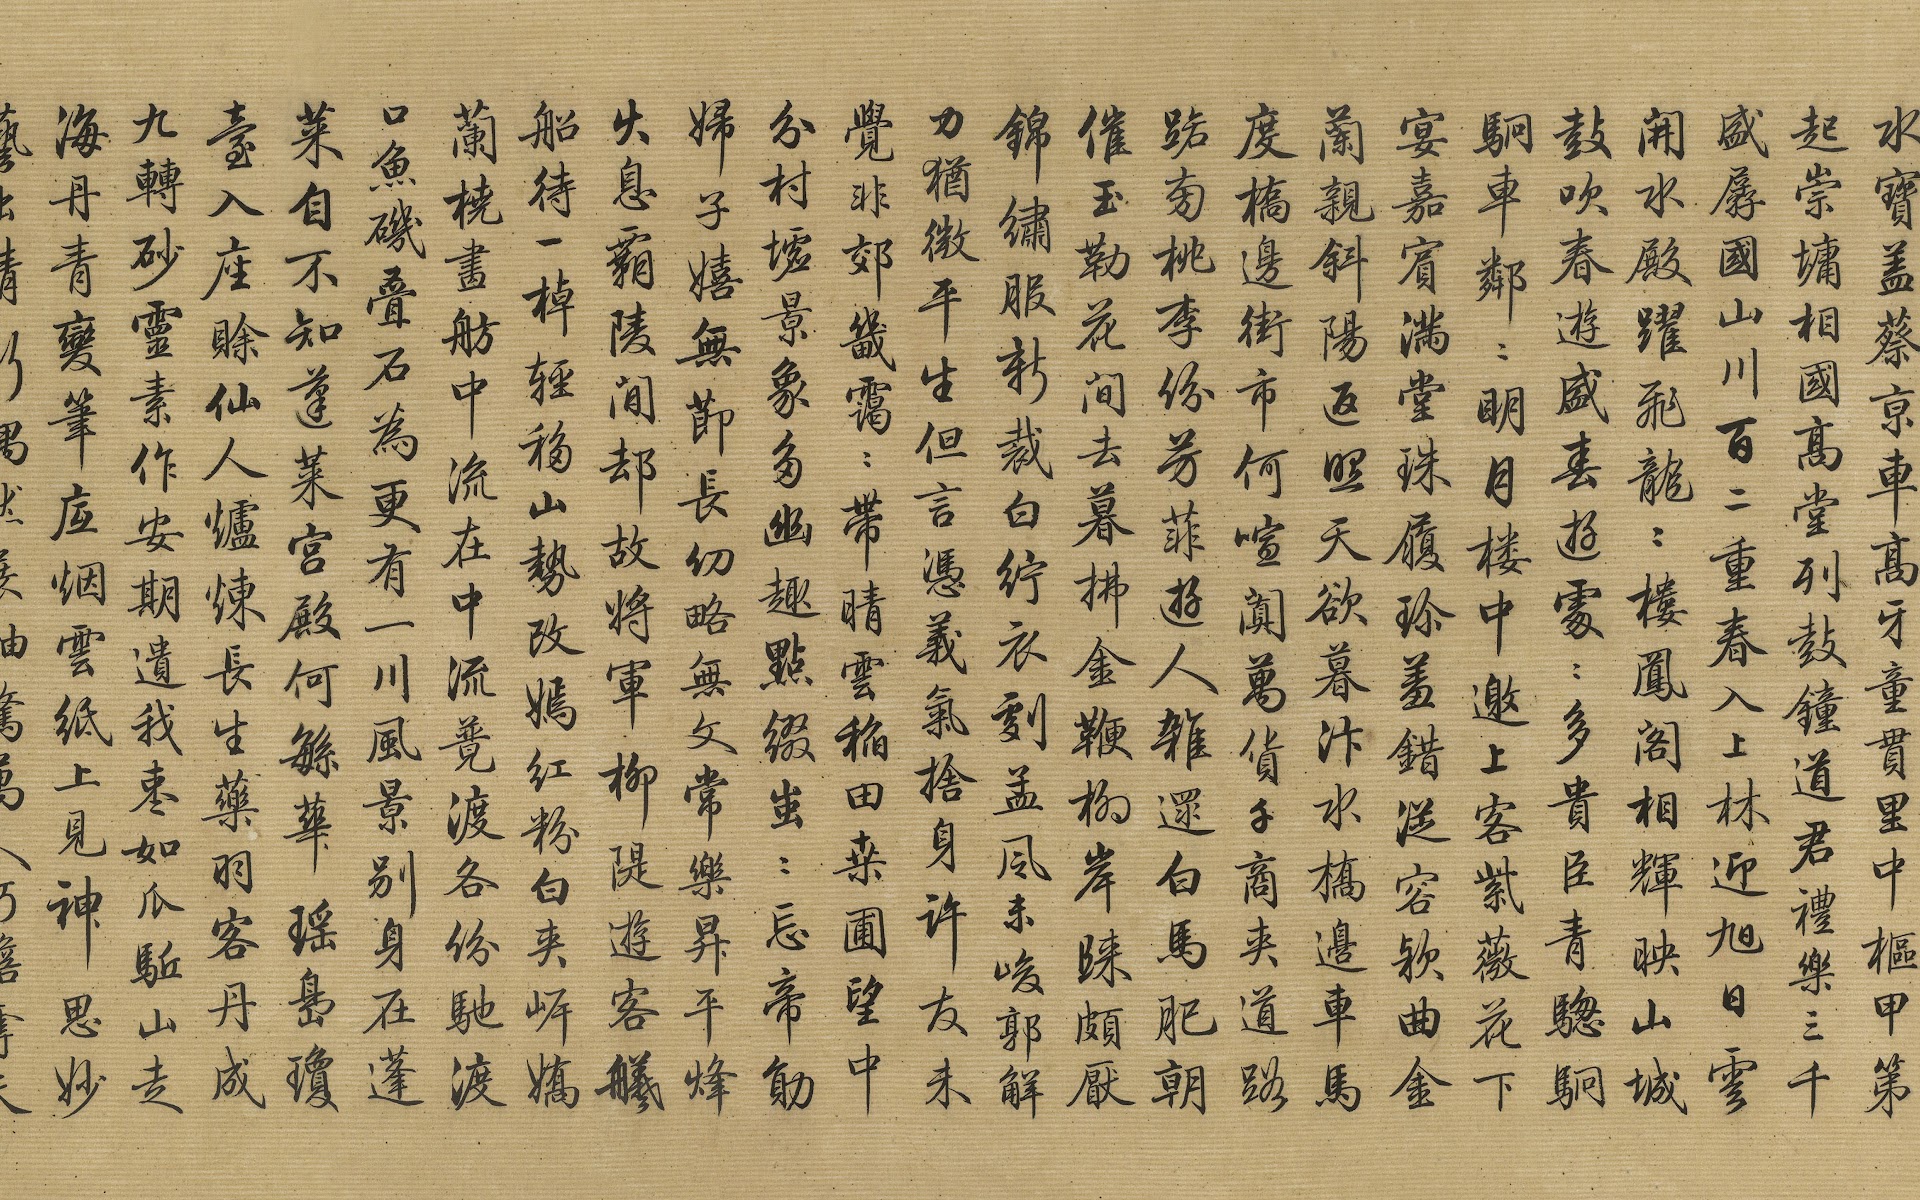 水寶蓋蔡京車高牙童貫里中樞甲第
起崇墉相國高堂列鼓鐘道君禮樂三千
盛孱國山川百二重春入上林迎旭日雲
開水殿躍飛龍〻樓鳳閣相輝映山城
鼓吹春遊盛春遊處〻多貴臣青驄駉
駉車鄰〻明月楼中邀上客紫薇花下
宴嘉賓滿堂珠履珍羞錯從容欵曲金
蘭親斜陽返照天欲暮汴水橋邊車馬
度橋邊街市何喧闐萬貨千商夾道路
踏芳桃李份芳菲遊人雜還白馬肥朝
催玉勒花間去暮拂金鞭柳岸歸頗厭
錦繡服新裁白紵衣劇孟風未峻郭解
力猶微平生但言憑義氣捨身許友未
覺非郊畿靄〻帶晴雲稲田桑圃望中
分村墟景象多幽趣點缀出〻忘帝勛
婦子嬉無節長幼略無文常樂昇平烽
火息霸陵間却故將軍柳隄遊客艤
船待一棹轻移山勢改嫣红粉白夾岍嬌
蘭橈畫舫中流在中流覽渡各份馳渡
口魚磯疊石為更有一川風景别身在蓬
莱自不知蓬莱宮殿何緐華瑶島瓊
臺入座賖仙人爐煉長生藥羽客丹成
九轉砂靈素作安期遺我枣如瓜駈山走
海丹青變筆底烟雲紙上見神思妙